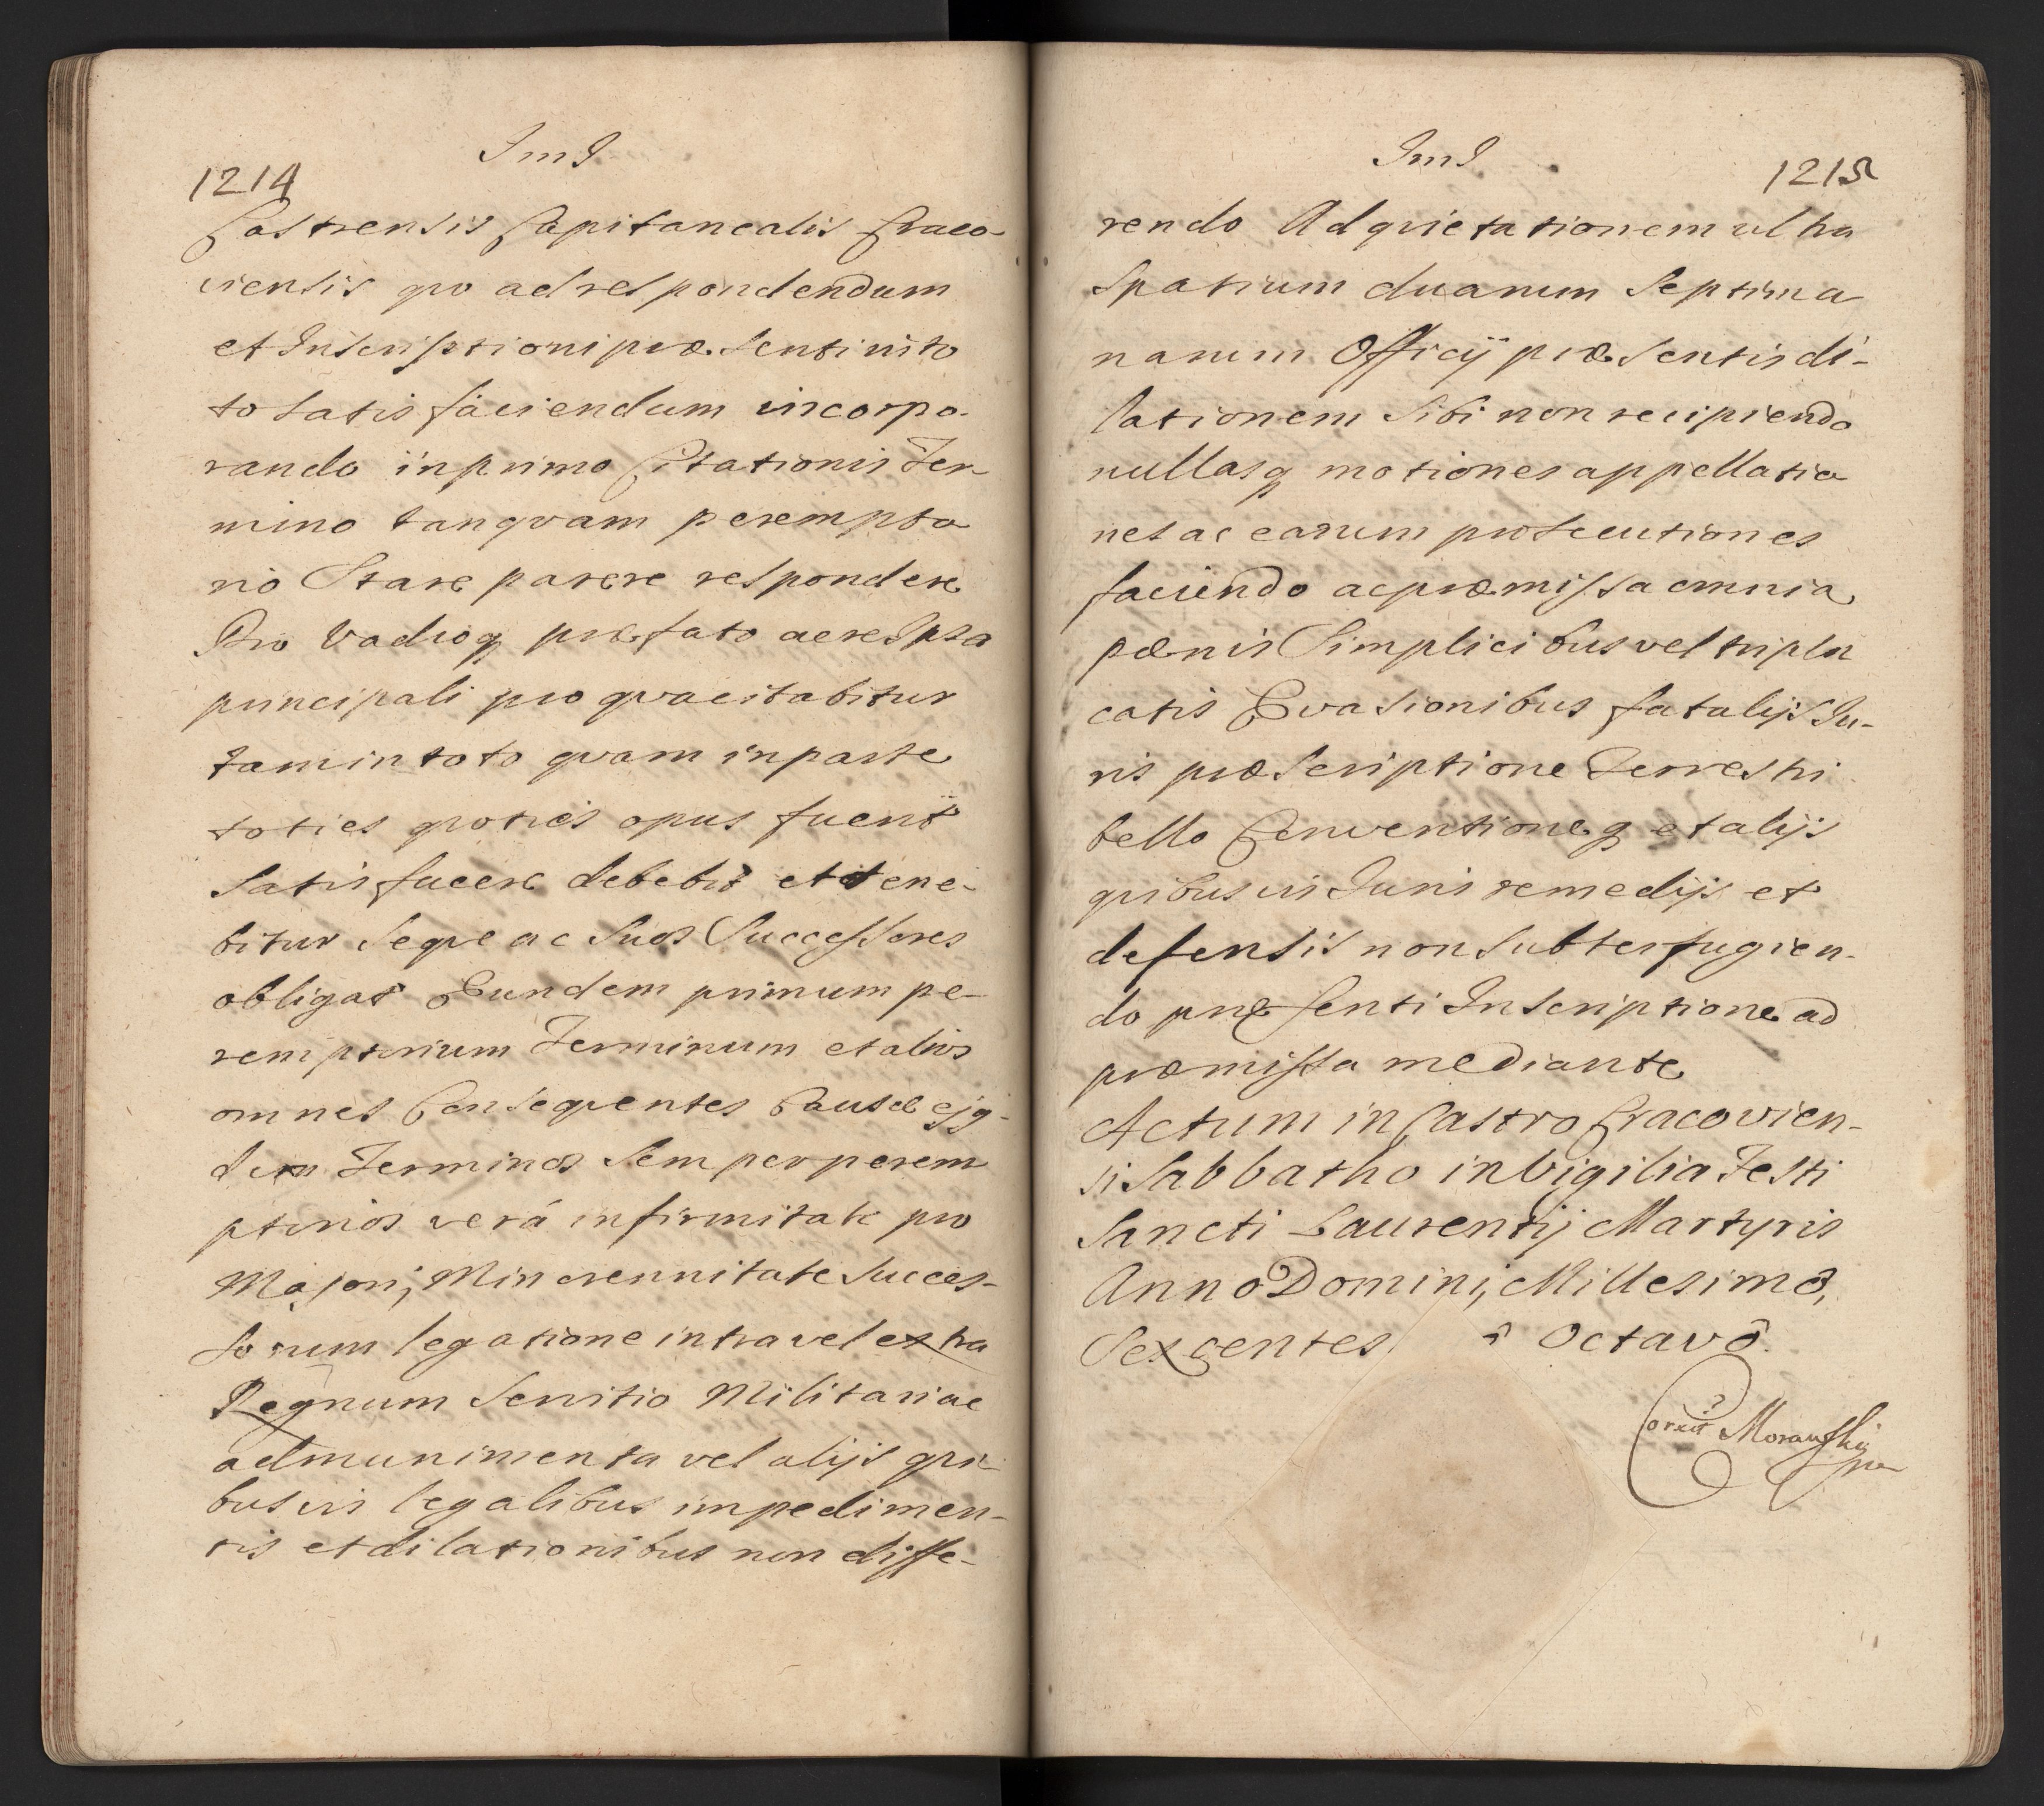 ImI
1214
Castrensis Capitanealis Craco-
viensis quo ad respondendum
et Inscriptioni præsenti into
to satis faciendum incorpo-
rando in primo Citationis Ter-
mino tanquam perempto
rio Stare parere respondere
Pro Vadioq præfato ac re Ipsa
principali pro qua citabitur
tam in toto quam in parte
toties quoties opus fuerit
Satis facere debebit et tene-
bitur seque ac suos Successores
obligat Eundem primum pe-
remptorium Terminum et alios
omnes Consequentes Causæ ejq-
dem Terminos semper perem
ptorios verá infirmitate pro
Majori, Minorennitate succes-
sorum legatione intra vel extra
Regnum servitio Militari ac
ad munimenta vel alijs qui-
busvis legalibus impedimen-
tis et dilationibus non diffe-
ImI
1215
rendo Ad quietationem ultra
spatium duarum Septima
narum Officij præsentis di-
lationem sibi non recipiendo
nullasq motiones appellatio
nes ac earum prosecutiones
faciendo ac præmissa omnia
pænis Simplicibus vel tripli
catis Evasionibus fatalijs Iu-
ris præscriptione Terrestri
bello Conventioneq et alijs
quibusvis Iuris remedijs et
defensis non subterfugien-
do præsenti Inscriptione ad
præmissa mediante
Actum in Castro Cracovien-
si Sabbatho in Vigilia Festi
Sancti Laurentij Martyris
Anno Domini, Millesimô,
Sexcentes ô Octavô.
Corxit Morawski
mp